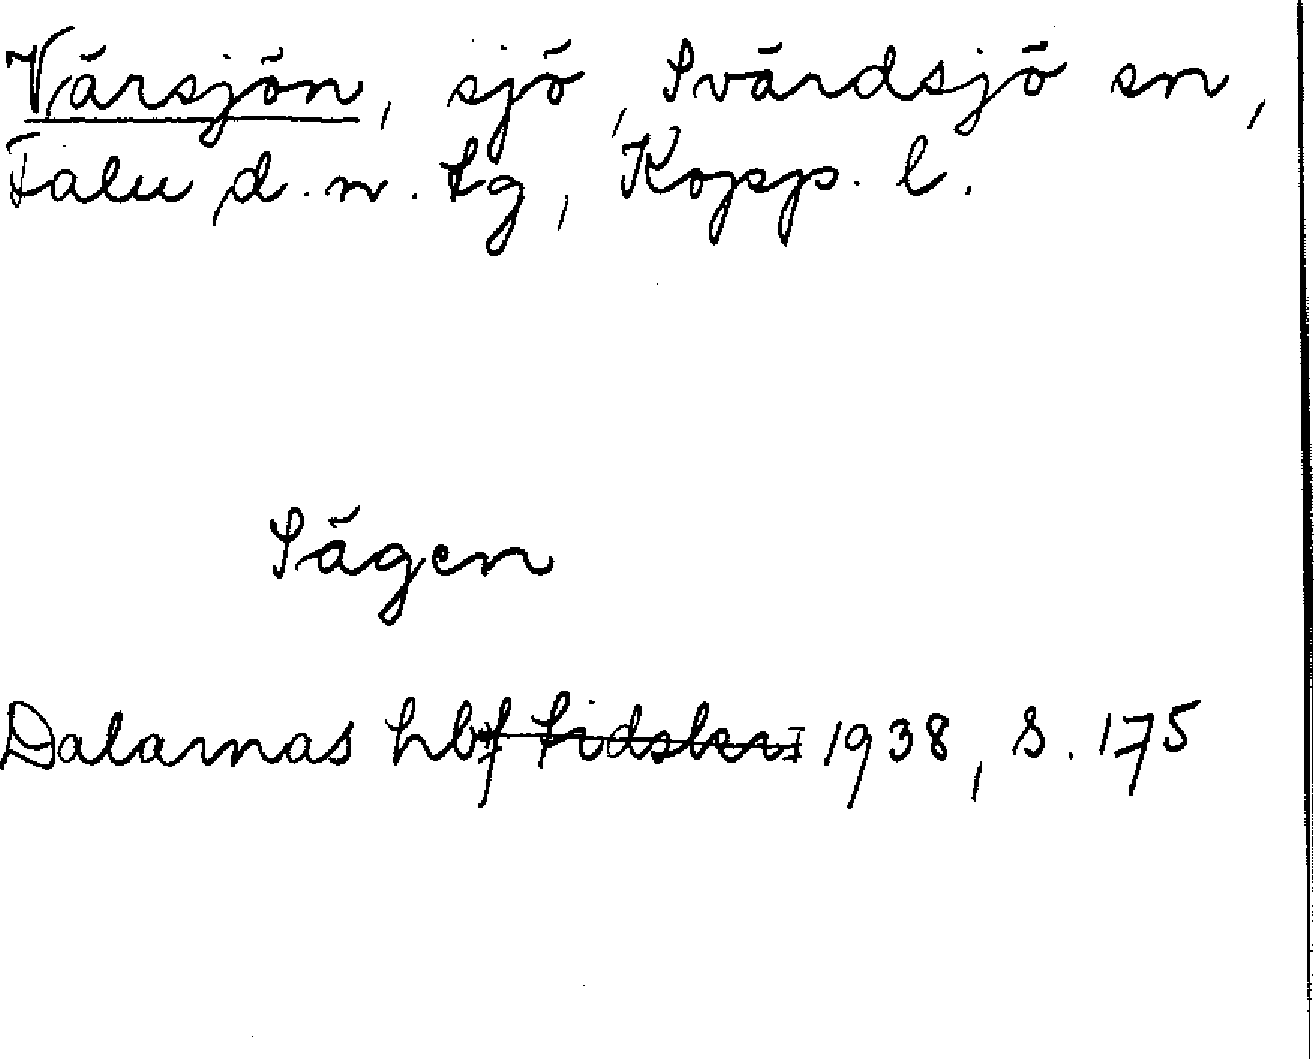 Värsjön, sjö, Svärdsjö sn,
Falu d. n. tg, Kopp. l.
Sägen
Dalarnas hbf tidskr. 1938, s. 175